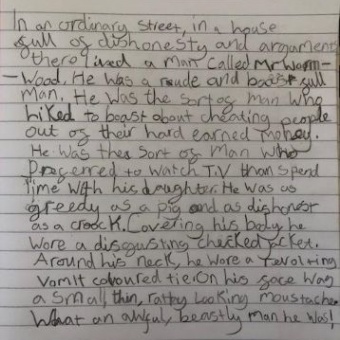 In an ordinary street, in a house
full of dishonesty and argument
there lived a man called Mr Worm-
-Wood. He was a rude and boast full
man. He was the sort of man who
liked to boast about cheating people
out of their hard earned money.
He was the sort of man who
preferred to watch T.V than spend
time with his daughter. He was as
greedy as a pig and as dishonest
as a crook. Covering his body he
wore a disgusting checked jacket.
Around his neck, he wore a revolting
vomit coloured tie. On his face was
a small, thin, ratty looking moustache.
What an awful, beastly man he was!